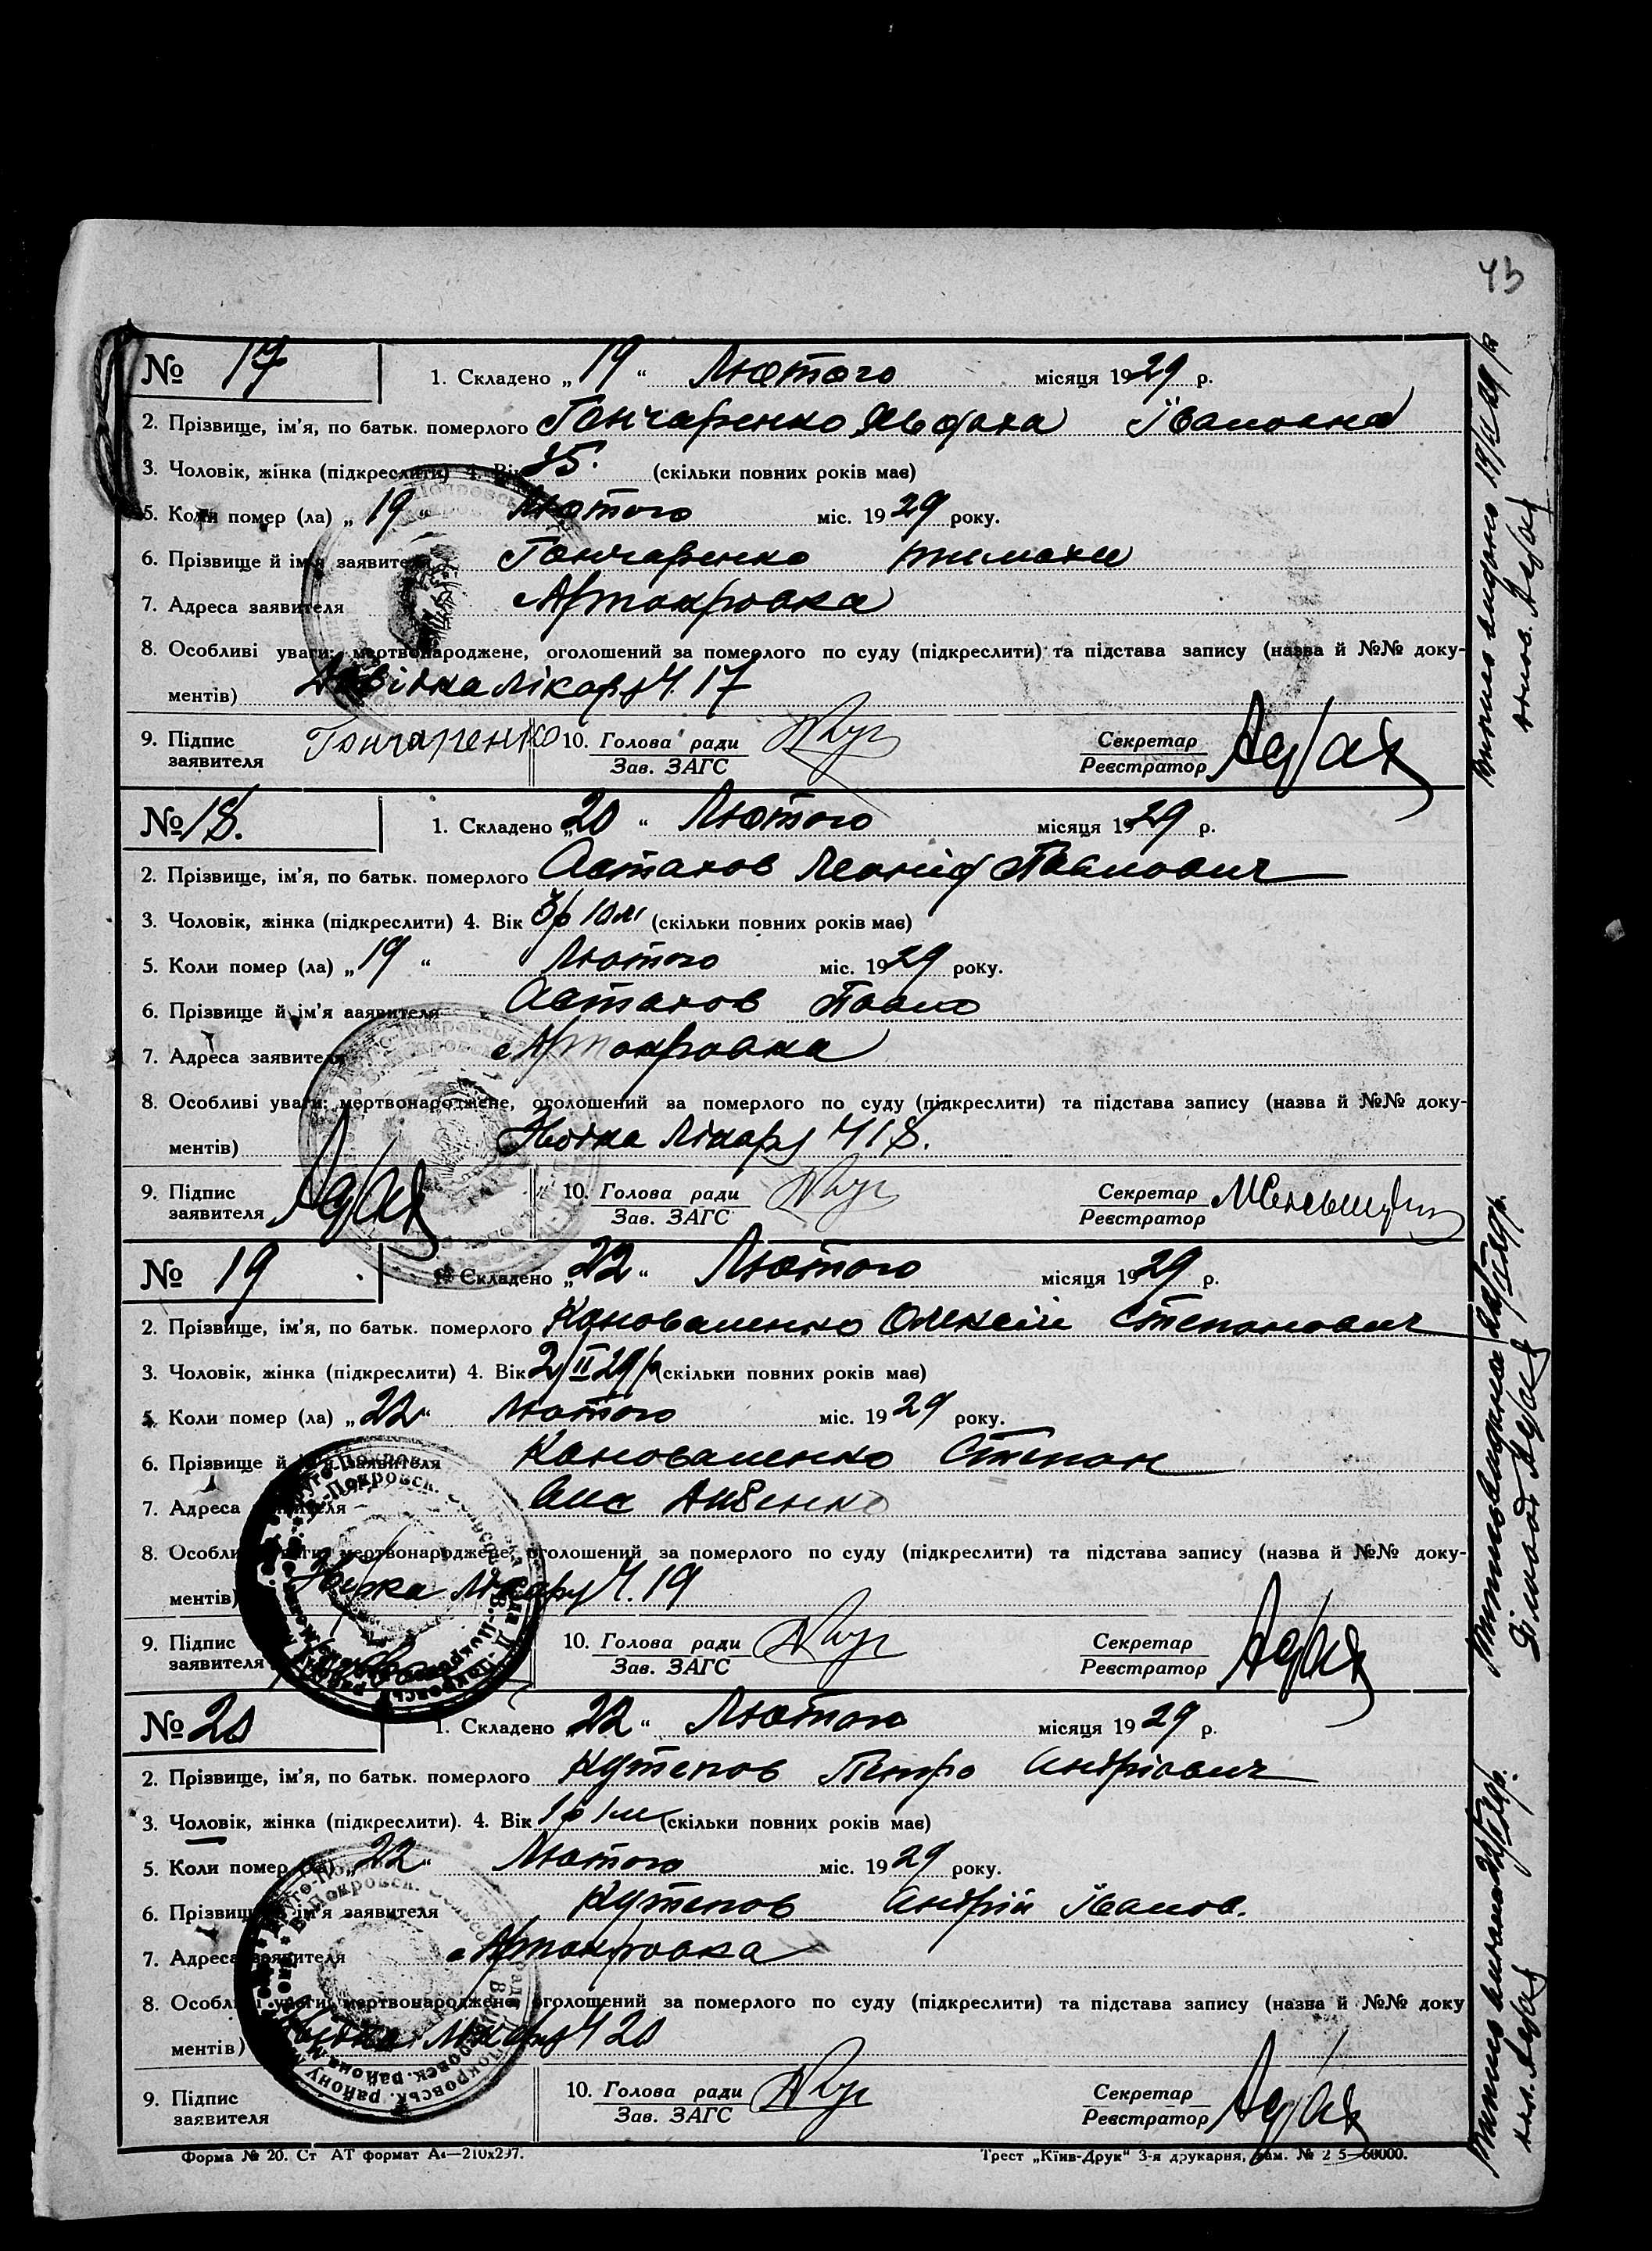 43
№ 17 1. Складено „ 19 “ Лютого місяця 1929 р.
2. Прізвище, ім'я, по батьк. померлого Гончаренко Івановна
3. Чоловік, жінка (підкреслити) 4. Вік 35. (скільки повних років має)
5. Коли помер (ла) „ 19 “ Лютого міс. 1929 року.
6. Прізвище й ім'я заявителя Гончаренко
7. Адреса заявителя Артокровка
8. Особливі уваги: мертвонароджене, оголошений за померлого по суду (підкреслити) та підстава запису (назва й №№ доку-
ментів) Довідка лікаря Ч. 17
9. Підпис заявителя Гончаренко 10. Голова ради Секретар
Зав. ЗАГС Реєстратор
№ 18. 1. Складено „ 20 “ Лютого місяця 1929 р.
2. Прізвище, ім'я, по батьк. померлого Астахов Леонід Павлович
3. Чоловік, жінка (підкреслити) 4. Вік 3р 10м (скільки повних років має)
5. Коли помер (ла) „ 19 “ Лютого міс. 1929 року.
6. Прізвище й ім'я заявителя Астахов Павло
7. Адреса заявителя Артокровка
8. Особливі уваги: мертвонароджене, оголошений за померлого по суду (підкреслити) та підстава запису (назва й №№ доку-
ментів) лікаря Ч 18.
9. Підпис заявителя 10. Голова ради Секретар
Зав. ЗАГС Реєстратор
№ 19 1. Складено „ 22 “ Лютого місяця 1929 р.
2. Прізвище, ім'я, по батьк. померлого Коноваленко Олексій Степанович
3. Чоловік, жінка (підкреслити) 4. Вік 2/II 29р (скільки повних років має)
5. Коли помер (ла) „ 22 “ Лютого міс. 1929 року.
6. Прізвище й ім'я заявителя Коноваленко Степан
7. Адреса заявителя
8. Особливі уваги: мертвонароджене, оголошений за померлого по суду (підкреслити) та підстава запису (назва й №№ доку-
ментів) лікаря Ч. 19
9. Підпис заявителя 10. Голова ради Секретар
Зав. ЗАГС Реєстратор
№ 20 1. Складено 22 “ Лютого місяця 1929 р.
2. Прізвище, ім'я, по батьк. померлого Кутепов Петро Андріович
3. Чоловік, жінка (підкреслити). 4. Вік 1р 1м (скільки повних років має)
5. Коли помер (ла) „ 22 “ Лютого міс. 1929 року.
6. Прізвище й ім'я заявителя Кутепов Андрій Іванов.
7. Адреса заявителя Артокровка
8. Особливі уваги: мертвонароджене, оголошений за померлого по суду (підкреслити) та підстава запису (назва й №№ доку
ментів) лікаря Ч 20
9. Підпис заявителя 10. Голова ради Секретар
Зав. ЗАГС Реєстратор
Форма № 20. Ст АТ формат А4—210х297. Трест „Київ-Друк“ 3-я друкарня,